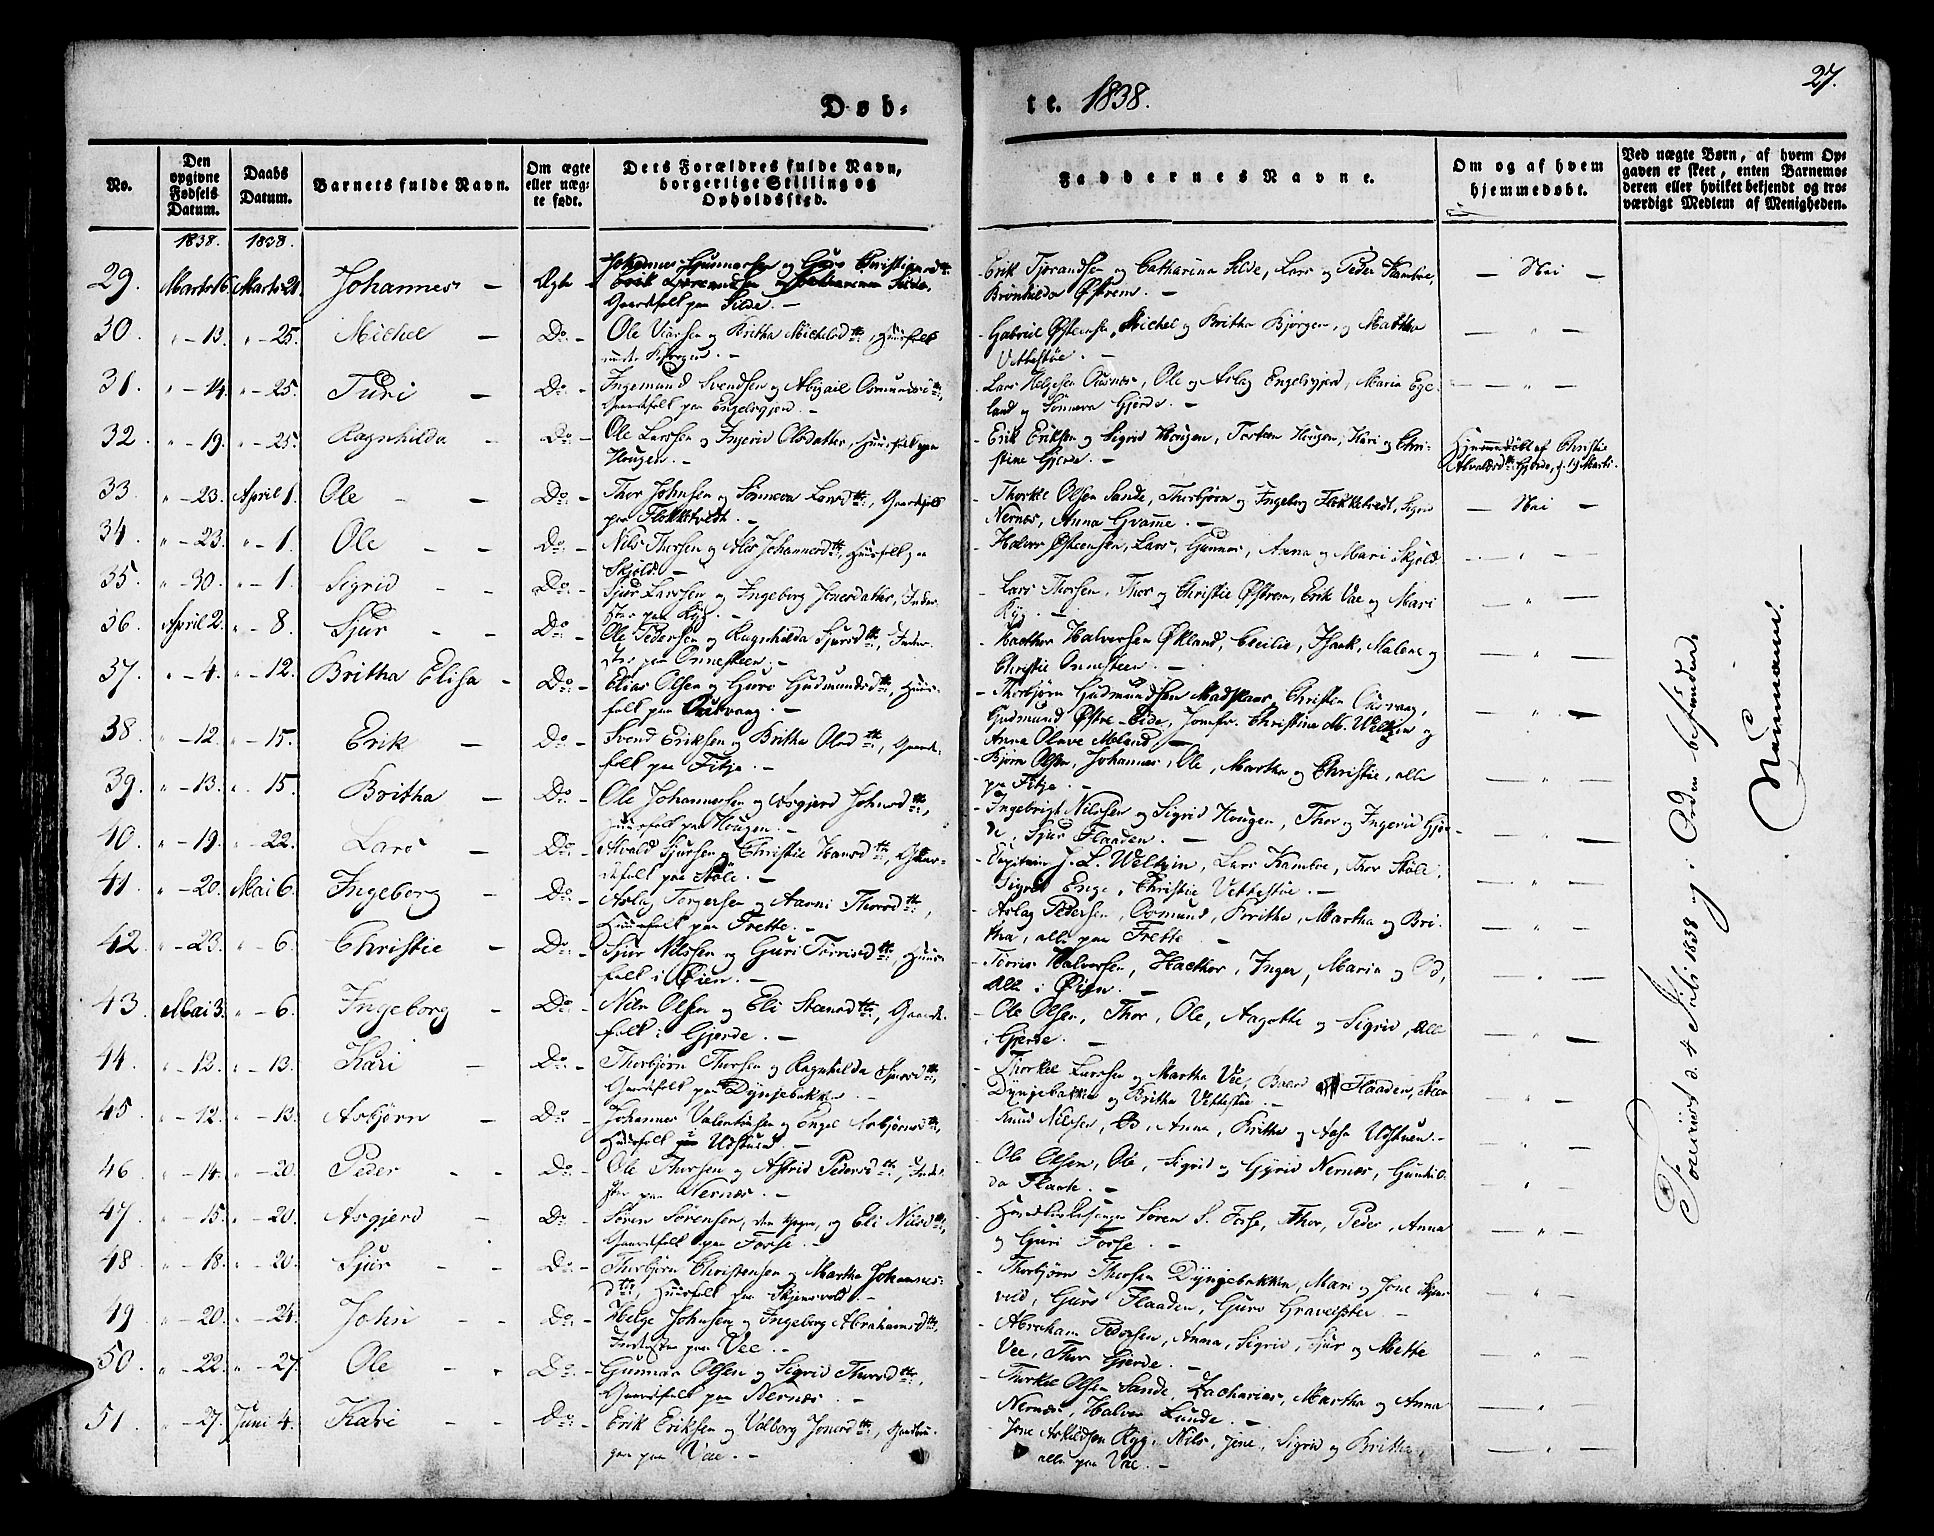 27.
Døb-
te. 1838.
No.
Den opgivne Fødsels Datum.
Daabs Datum.
Barnets fulde Navn.
Om ægte eller uægte født.
Dets Forældres fulde Navn, borgerlige Stilling og Opholdssted.
Faddernes Navne.
Om og af hvem hjemmedøbt.
Ved uægte Børn, af hvem Opgaven er skeet, enten Barnemoderen eller hvilket bekjendt og troværdigt Medlem af Menigheden.
1838. 1838.
29. Marts 16. Marts 21. Johannes — Ægte —
Gaardfolk paa Silde. —
Erik Tjerandsen og Catharina Silde, Lars og Peder Kambve, — Nei —
Brønhilda Østrem. —
30. " — 13. " — 25. Michel — Do. — Ole Larsen og Britha Michelsd., Huusfolk
Gabriel Østensen, Michel og Britha Bjørgen, og Martha — " —
Vettestøe. —
31. " — 14. " — 25. Turi — Do. — Ingemund Svendsen og Abigail Osmundsd.,
Gaardfolk paa Engelsgjerd. —
Lars Helgesen Ousnes, Ole og Aslag Engelsgjerd, Maria Ege- — " —
land og Sønneva Gjerde. —
32. " — 19. " — 25. Ragnhilda — Do. — Ole Larsen og Ingerid Olsdatter, Huusfolk paa
Hougen. —
Erik Eriksen og Sigrid Hougen, Torsteen Hougen, Kari og Chri-
stine Gjerde. —
Hjemmedøbt af Christie
Gjerde, d. 19 Marts.
33. " — 23. April 1. Ole — Do. — Thor Johnsen og Sønneva Larsd., Gaardfolk
paa Flokketvedt. —
Thorkel Olsen Sande, Thorbjørn og Ingeborg Flokketvedt, Sigrid — Nei —
Nernes, Anna Gramme. —
34. " — 23. " — 1. Ole — Do. — Nils Thorsen og Ales Johannesd., Huusfolk paa
Skjold. —
Halvor Østensen, Lars, Gunnor, Anna og Mari Skjold. — " —
35. " — 30. " — 1. Sigrid — Do. — Sjur Larssen og Ingeborg Jonesdatter, Inder-
ster paa Ryg. —
Lars Thorsen, Thor og Christie Østrem, Erik Vae og Mari — " —
Ryg. —
36. April 2. " — 8. Sjur — Do. — Ole Pedersen og Ragnhilda Sjursd., Inder-
ster paa Onnesteen. —
Halvorsen Økland, Cecilie, Isaak, Malene og — " —
Christie Onnesteen. —
37. " — 4. " — 12. Britha Elisa — Do. — Elias Olsen og Guro Gudmundsd., Huus-
folk paa Ousvaag. —
Thorbjørn Gudmundsen Madskaar, Christen Ousvaag, — " —
Gudmund Østre-Eide, Jomfr. Christina M. Weltzin og
Anna Olave Meland. —
38. " — 12. " — 15. Erik — Do. — Svend Eriksen og Britha Olsd., Gaard-
folk paa Fitje. —
Bjørn Olsen, Johannes, Ole, Martha og Christie, alle — " —
paa Fitje. —
39. " — 13. " — 15. Britha — Do. — Ole Johannessen og Asgjerd Johnsd.,
Huusfolk paa Hougen. —
Ingebrigt Nilssen og Sigrid Hougen, Thor og Ingerid Gjer- — " —
de, Sjur Flaaden. —
40. " — 19. " — 22. Lars — Do. — Sjursen og Christie Hansd.,
paa Støle. —
Capitain J. L. Weltzin, Lars Kambve, Thor Støle, — " —
Sigrid Enge, Christie Vettestøe. —
41. " — 20. Mai 6. Ingeborg — Do. — Aslag Torgersen og Aarni Thorsd.,
Huusfolk paa Frette. —
Aslag Pedersen, Osmund, Britha, Martha og Bri- — " —
tha, alle paa Frette. —
42. " — 23. " — 6. Christie — Do. — Sjur Nilssen og Guri Torrisd., Huus-
folk i Øien. —
Torris Halvorsen, Haethor, Inger, Maria og Od, — " —
Alle i Øien. —
43. Mai 3. " — 6. Ingeborg — Do. — Nils Olsen og Eli Steensd., Gaard-
folk i Gjerde. —
Ole Olsen, Thor, Ole, Aagothe og Sigrid, Alle — " —
i Gjerde. —
44. " — 12. " — 13. Kari — Do. — Thorbjørn Thorsen og Ragnhilda Sjursd.,
Gaardfolk paa Dyngebakke. —
Thorkel Larssen og Martha Vee, Baard Flaaden, Steen — " —
Dyngebakke og Britha Vettestøe. —
45. " — 12. " — 13. Asbjørn — Do. — Johannes Valentinsen og Engel Asbjørnsd.,
Huusfolk i Udstuen. —
Knud Nilssen, Od, Anna, Britha og Aasa Udstuen. — — " —
46. " — 14. " — 20. Peder — Do. — Ole Thorsen og Astrid Pedersd., Inder-
ster paa Nernes. —
Ole Olsen, Ole, Sigrid og Gyrid Nernes, Gunhil- — " —
da Flaate. —
47. " — 15. " — 20. Asgjerd — Do. — Søren Sørensen, den yngre, og Eli Nilsd.,
Gaardfolk paa Forse. —
Søren S. Forse, Thor, Peder, Anna — " —
og Guri Forse. —
48. " — 18. " — 20. Sjur — Do. — Thorbjørn Christensen og Martha Johannes-
d., Huusfolk paa Skjensvold. —
Thorbjørn Thorsen Dyngebakke, Mari og Jone Skjens- — " —
vold, Guro Flaaden, Guro Graveister. —
49. " — 20. " — 24. John — Do. — Helge Johnsen og Ingeborg Abrahamsd.,
Inderster paa Vee. —
Abraham Pedersen, Anna, Sigrid, Sjur og Mette — " —
Vee, Thor Gjerde. —
50. " — 22. " — 27. Ole — Do. — Gunnar Olsen og Sigrid Thorsd.,
Gaardfolk paa Nernes. —
Thorkel Olsen Sande, Zacharias, Martha og Anna — " —
Nernes, Halvor Lunde. —
51. " — 27. Juni 4. Kari — Do. — Erik Eriksen og Valborg Jonesd.,
paa Vae. —
Jone Askildsen Ryg, Nils, Jone, Sigrid og Britha, — " —
alle paa Vae. —
d. 4 Juli 1838 og i Orden befunden.
Naumann.